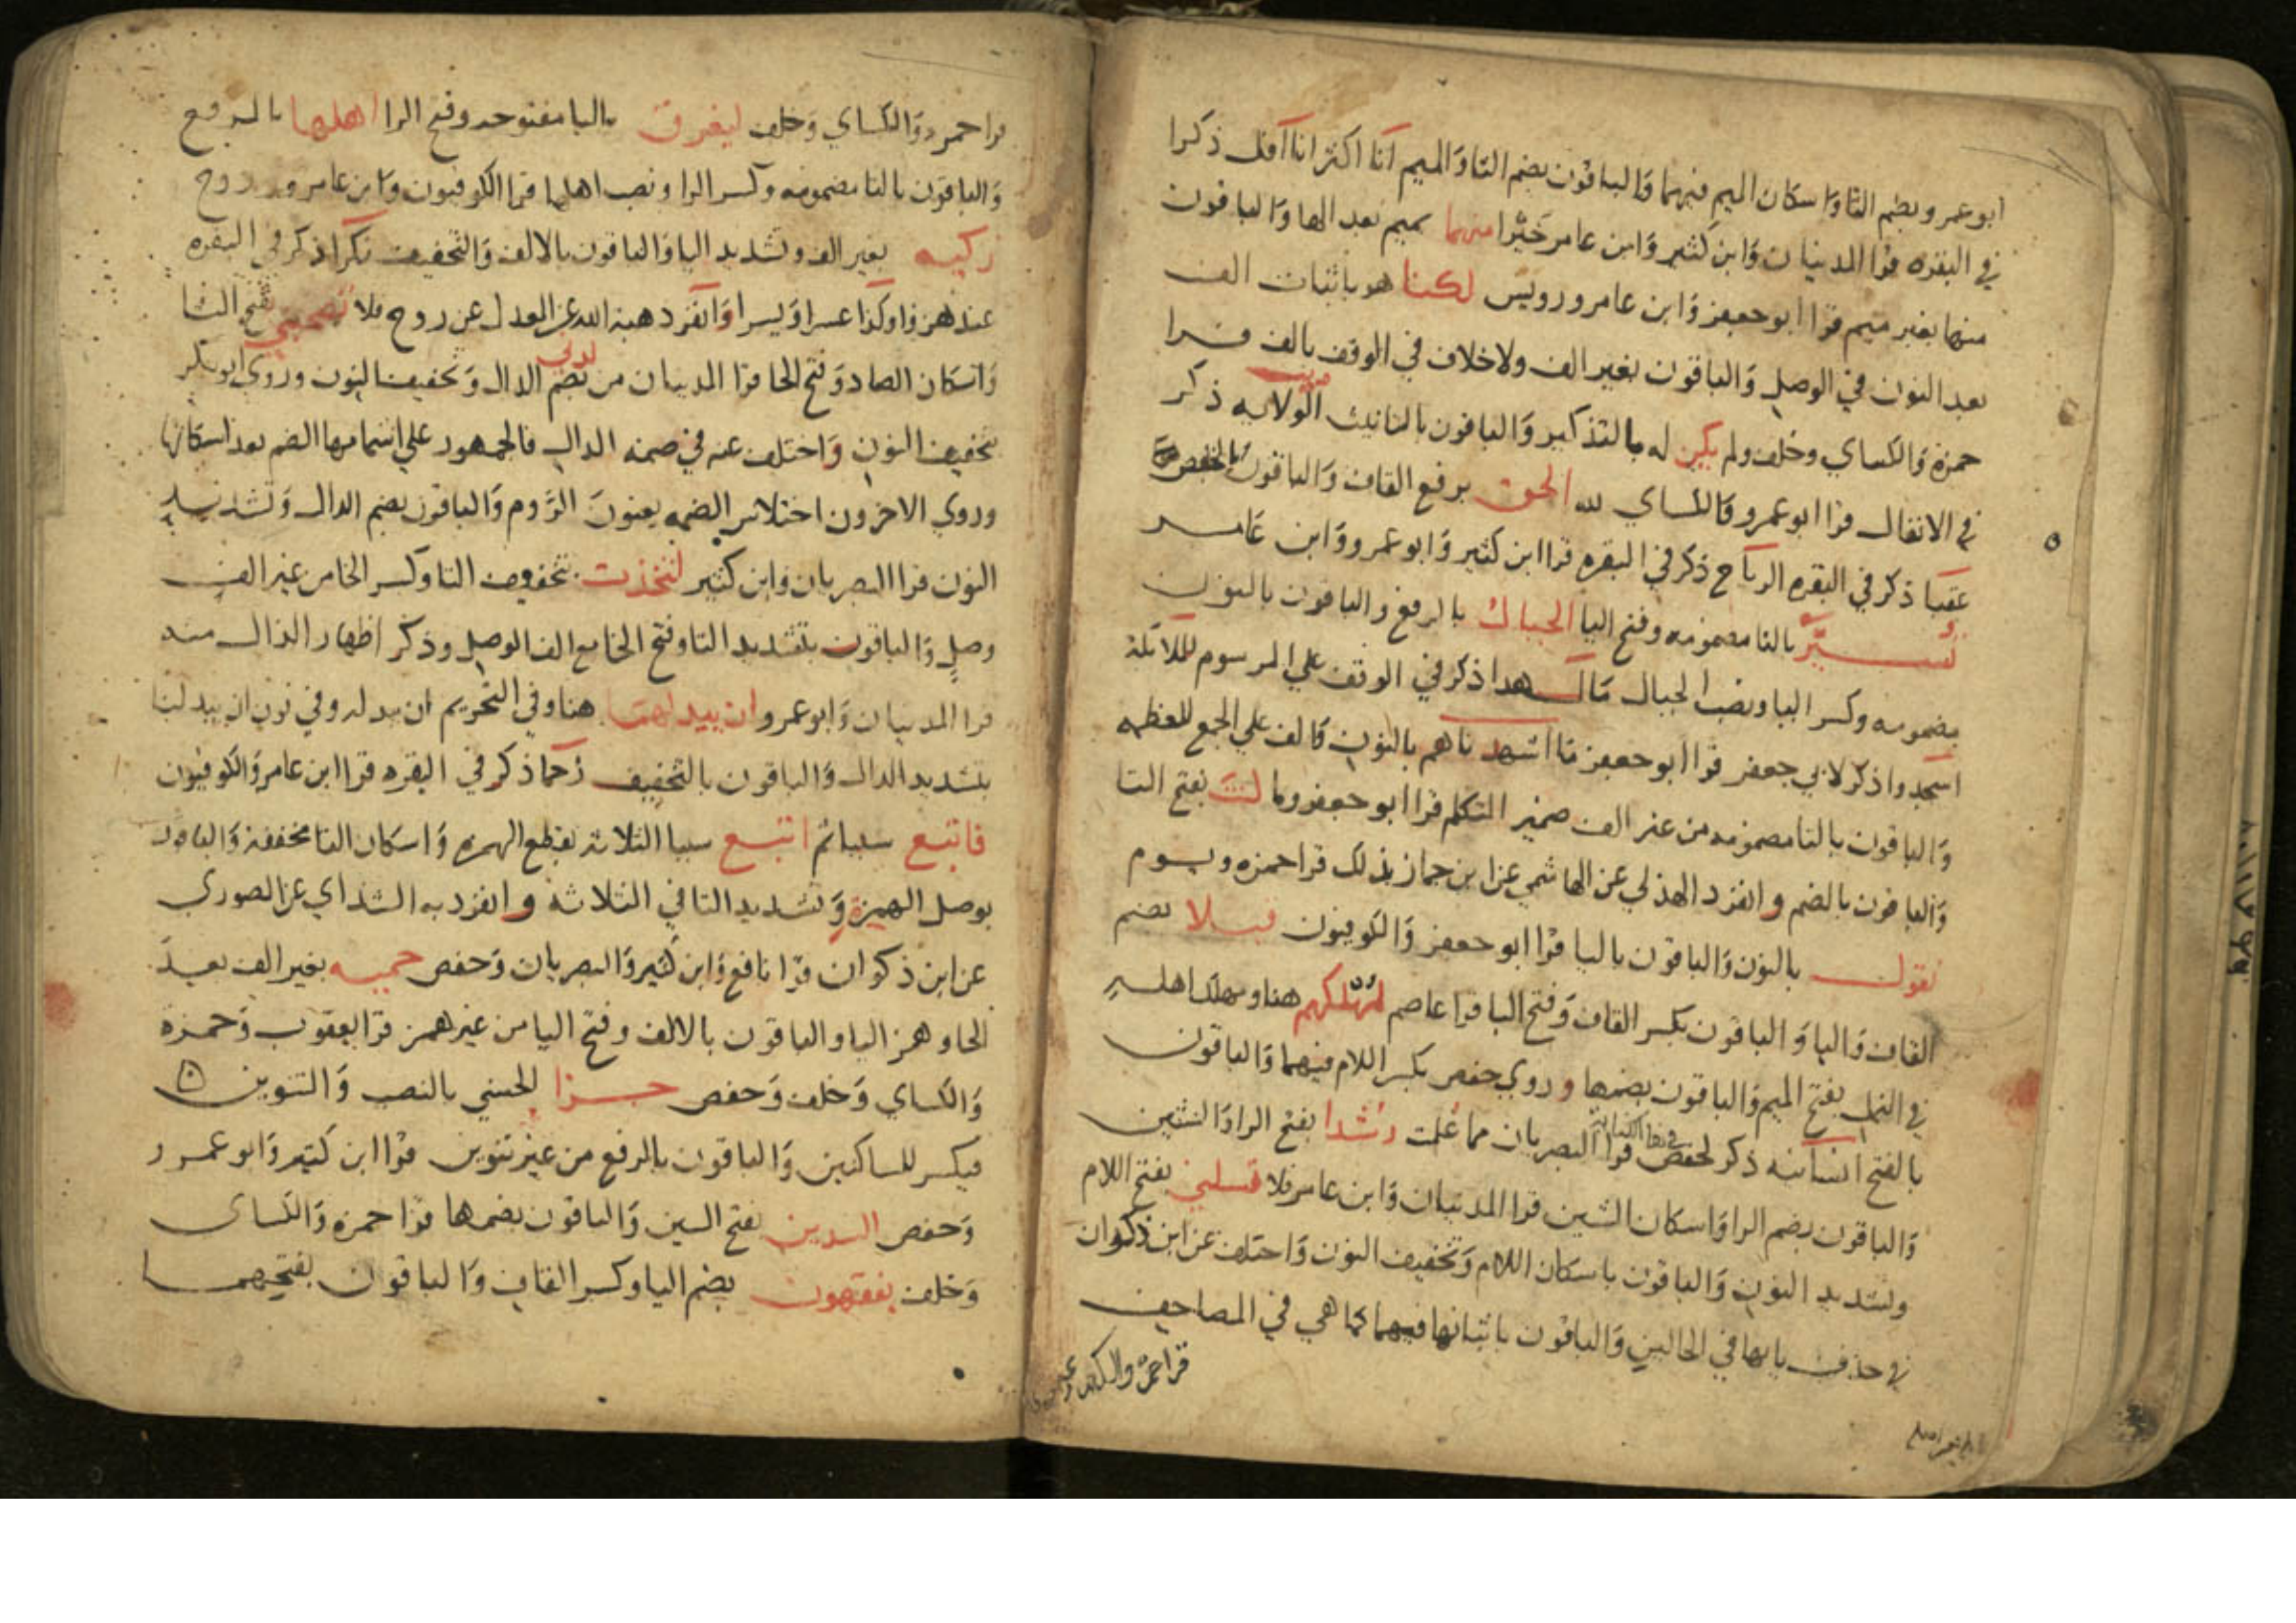 ابو عمرو وبضم الثا واسكان الميم فيهما والباقون بضم الثا والميم انا اكثر انا اقل ذكرا
في البقره قرا المدنيان وابن كثير وابن عامر خيرا منهما بميم بعد الها والباقون
منها بغير ميم قرا ابو جعفر وابن عامر ورويس لكنا هو باثبات الف
بعد النون في الوصل والباقون بغير الف ولا خلاف في الوقف بالف قرا
حمزه والكساي وخلف ولم يكن له بالتذكير والباقون بالتانيث الولايه ذكر
في الانفال قرا ابو عمرو والكساي لله الحق برفع القاف والباقون بالخفض
عقبا ذكر في البقره الرياح ذكر في البقره قرا ابن كثير وابو عمرو وابن عامر
تسير بالتا مضمومه وفتح اليا الجبال بالرفع والباقون بالنون
مضمومه وكسر اليا ونصب الجبال مال هذا ذكر في الوقف علي المرسوم للملائكة
اسجدوا ذكر لابي جعفر قرا ابو جعفر ما اشهدناهم بالنون والف علي الجمع للعظمه
والباقون بالتا مضمومه من غير الف ضمير المتكلم قرا ابو جعفر وما كنت بفتح التا
والباقون بالضم وانفرد الهذلي عن الهاشمي عن ابن جماز بذلك قرا حمزه ويوم
نقول بالنون والباقون باليا قرا ابو جعفر والكوفيون قبلا بضم
القاف والبا والباقون بكسر القاف وفتح البا قرا عاصم لمهلكهم هنا ومهلك اهله
في النمل بفتح الميم والباقون بضمها وروي حفص بكسر اللام فيهما والباقون
بالفتح انسانيه ذكر لحفص في هاالكنايه قرا البصريان مما علمت رشدا بفتح الرا والشين
والباقون بضم الرا واسكان الشين قرا المدنيان وابن عامر فلا تسلني بفتح اللام
وتشديد النون والباقون باسكان اللام وتخفيف النون واختلف عن ابن ذكوان
في حذف يايها في الحالين والباقون باثباتها فيهما كما هي في المصاحف
قرا حمزه والكساي
قرا حمزه والكساي وخلف ليغرق باليا مفتوحه وفتح الرا اهلها بالرفع
والباقون بالتا مضمومه وكسر الرا ونصب اهلها قرا الكوفيون وابن عامر وروح
زكيه بغير الف وتشديد اليا والباقون بالالف والتخفيف نكرا ذكر في البقره
عند هزوا وكذا عسرا ويسرا وانفرد هبة الله عن المعدل عن روح فلا تصحبني بفتح التا
واسكان الصاد وفتح الحا قرا المدنيان من لدني بضم الدال وتخفيف النون وروي ابو بكر
بتخفيف النون واختلف عنه في ضمه الدال فالجمهور علي اشمامها الضم بعد اسكانها
وروي الاخرون اختلاس الضمه يعنون الروم والباقون بضم الدال وتشديد
النون قرا البصريان وابن كثير لتخذت بتخفيف التا وكسر الخا من غير الف
وصل والباقون بتشديد التا وفتح الخا مع الف الوصل وذكر اظهار الذال منه
قرا المدنيان وابو عمرو ان يبدلهما هنا وفي التحريم ان يبدله وفي نون ان يبدلنا
بتشديد الدال والباقون بالتخفيف رحما ذكر في البقره قرا ابن عامر والكوفيون
فاتبع سببا ثم اتبع سببا الثلاثة بقطع الهمزه واسكان التا مخففة والباقون
بوصل الهمزة وتشديد التا في الثلاثه وانفرد به الشذاي عن الصوري
عن ابن ذكوان قرا نافع وابن كثير والبصريان وحفص حميه بغير الف بعد
الحا وهمز اليا والباقون بالالف وفتح اليا من غير همز قرا يعقوب وحمزه
والكساي وخلف وحفص جزا الحسني بالنصب والتنوين
فيكسر للساكنين والباقون بالرفع من غير تنوين قرا ابن كثير وابو عمرو
وحفص السدين بفتح السين والباقون بضمها قرا حمزه والكساي
وخلف يفقهون بضم اليا وكسر القاف والباقون بفتحهما